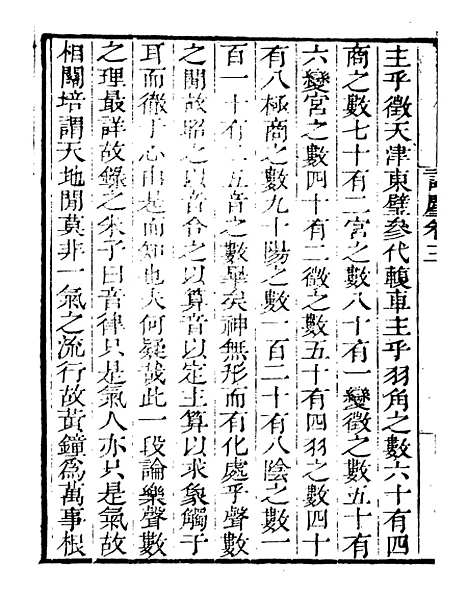 主乎徵天津東壁參代轅車主乎羽角之數六十有四
商之數七十有二宮之數八十有一變徵之數五十有
六變宮之數四十有二徵之數五十有四羽之數四十
有八極商之數九十陽之數一百二十有八陰之數一
百一十有二五音之數畢矣神無形而有化處乎聲數
之間故昭之以音合之以算音以定主算以求象觸于
耳而徹于心由是而知也夫何疑哉此一段論樂聲數
之理最詳故錄之朱子曰音律只是氣人亦只是氣故
相關培謂天地間莫非一氣之流行故黃鐘爲萬事根
卷三